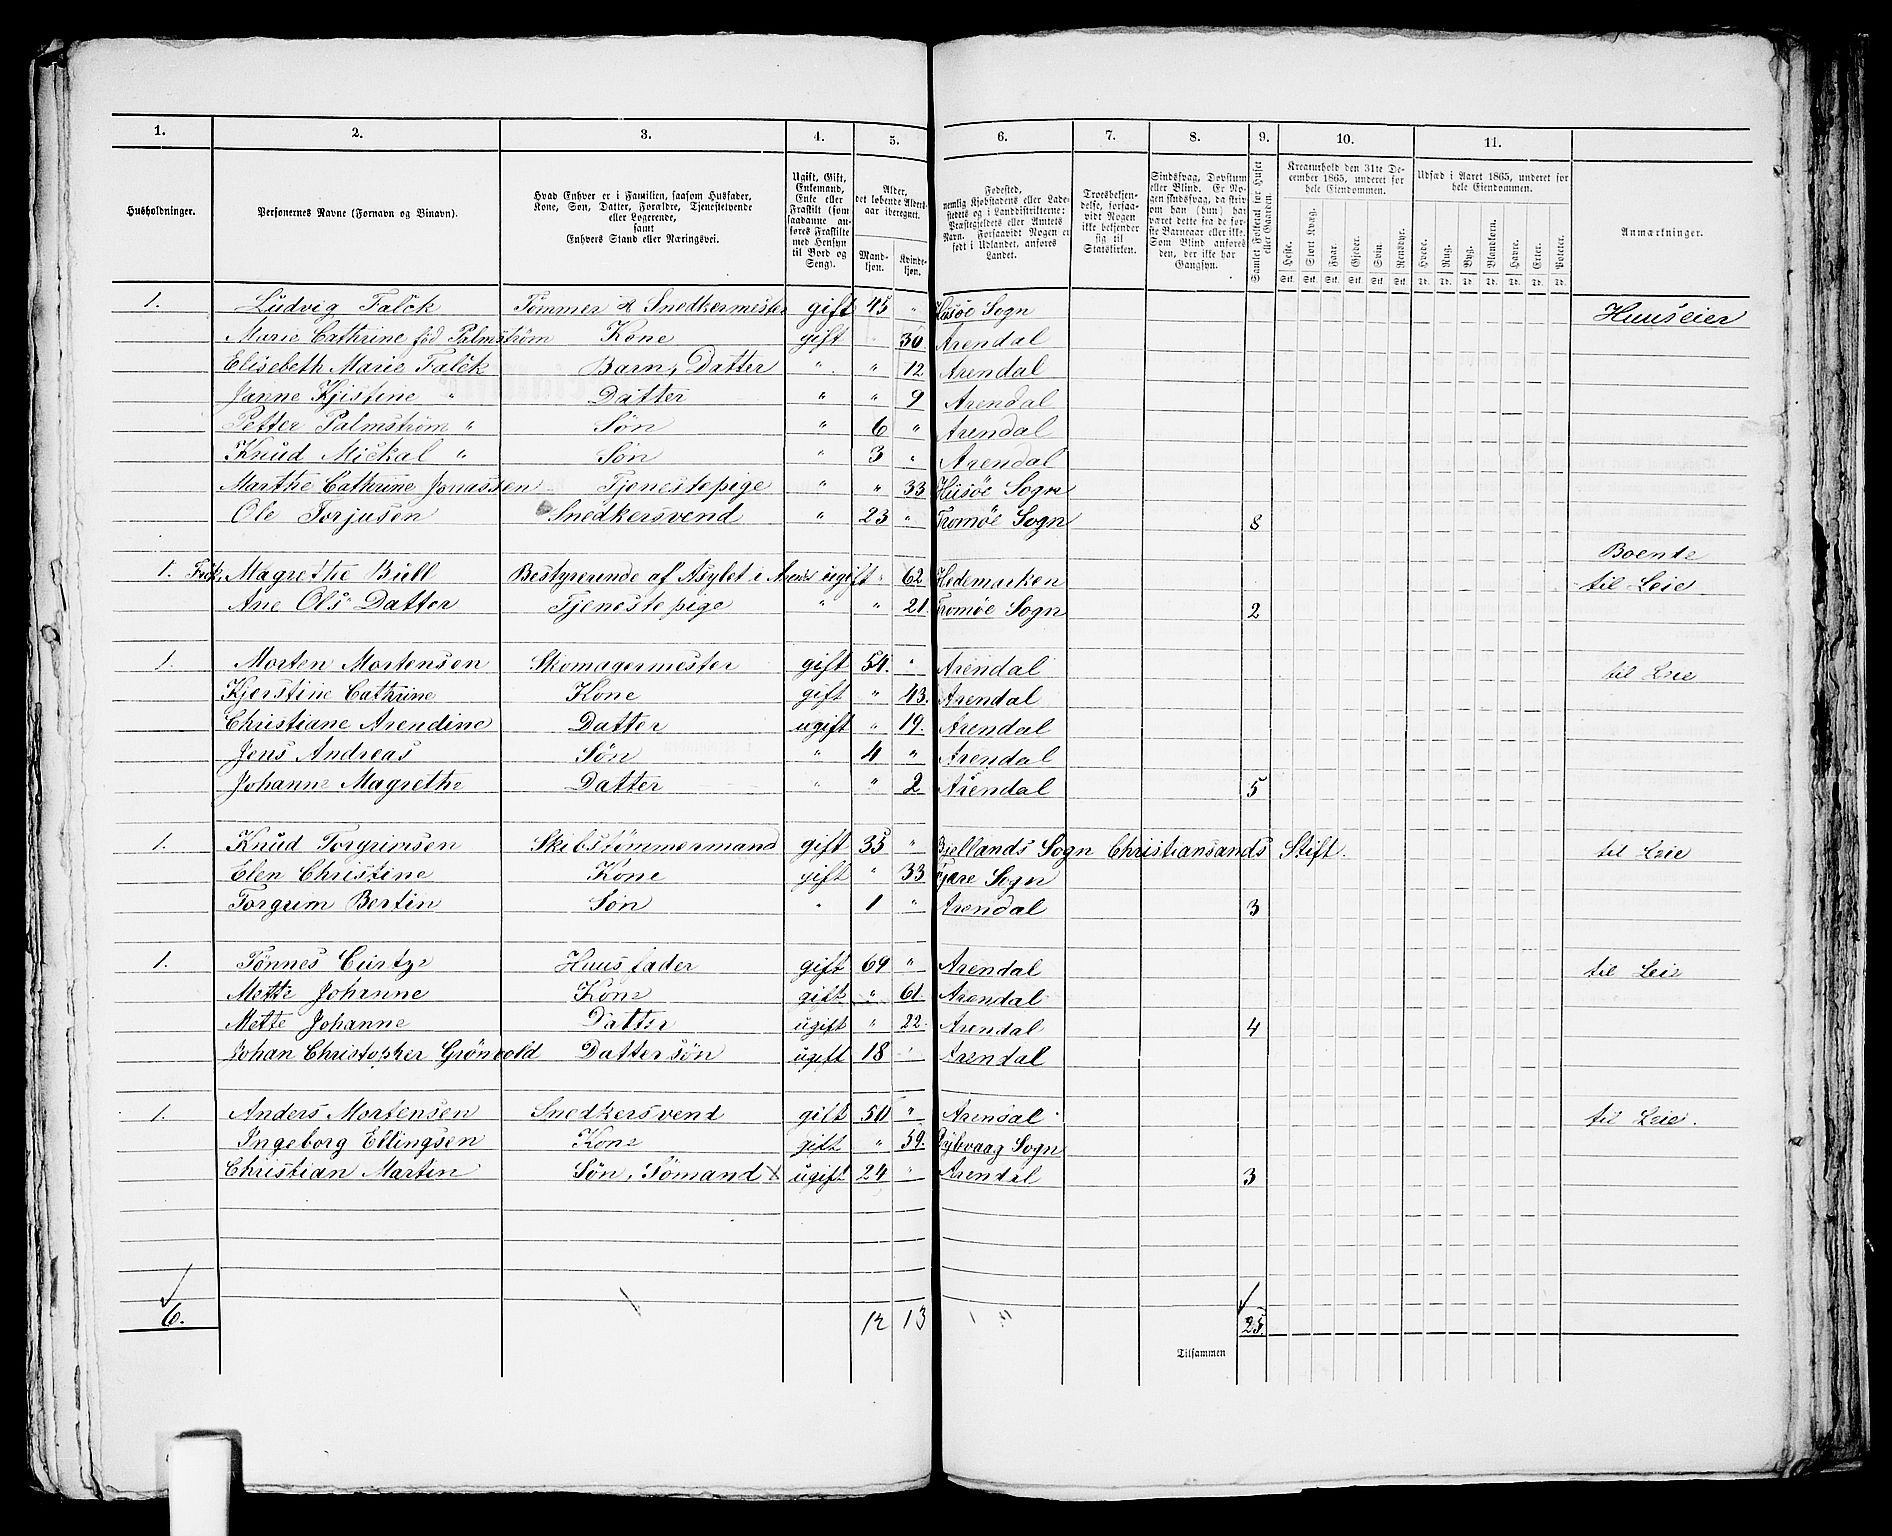 1. 2. 3. 4. 5. 6. 7. 8. 9. 10. 11.
Husholdninger.
Personernes Navne (Fornavn og Binavn).
Hvad Enhver er i Familien, saasom Husfader,
Kone, Søn, Datter, Forældre, Tjenestetyende
eller Logerende,
samt
Enhvers Stand eller Næringsvei.
Ugift, Gift,
Enkemand,
Enke eller
Fraskilt (som
saadanne an-
føres Fraskilte
med Hensyn
til Bord og
Seng).
Alder,
det løbende Alders-
aar iberegnet.
Mand-
kjøn.
Kvinde-
kjøn.
Fødested,
nemlig Kjøbstadens eller Lade-
stedets og i Landdistrikterne:
Præstegjeldets eller Amtets
Navn. Forsaavidt Nogen er
født i Udlandet, anføres
Landet.
Troesbekjen-
delse, forsaa-
vidt Nogen
ikke bekjender
sig til
Statskirken.
Sindssvag, Døvstum
eller Blind. Er No-
gen sindssvag, da skriv
om han (hun) har
været dette fra de før-
ste Barneaar eller ikke.
Som Blind anføres
den, der ikke har
Gangsyn.
Samlet Folketal for Huset
eller Gaarden.
Kreaturhold den 31te De-
cember 1865, underet for
hele Eiendommen.
Heste. Stort Kvæg. Faar. Gjeder. Svin. Rensdyr.
Stk. Stk. Stk. Stk. Stk. Stk.
Udsæd i Aaret 1865, underet for
hele Eiendommen.
Hvede. Rug. Byg. Blandkorn. Havre. Erter. Poteter.
Td. Td. Td. Td. Td. Td. Td.
Anmærkninger.
1. Ludvig Falck Tømmer & Snedkermester gift 45 " Hisøe Sogn Huuseier
Marie Cathrine fød Palmstrøm Kone gift 30 Arendal
Elisebeth Marie Falck Barn, Datter " " 12 Arendal
Janne Kjistine " Datter " " 9 Arendal
Petter Palmstrøm " Søn " 6 " Arendal
Knud Mickal " Søn " 3 " Arendal
Marthe Cathrine Jonassen Tjenestepige " " 33 Hisøe Sogn
Ole Torjusen Snedkersvend " 23 " Tromøe Sogn 8
Boende
1. Frøk. Magrethe Bull Bestyrerende af Asylet i ugift " 62 Hedemarken til Leie
Ane Ols Datter Tjenestepige " " 21. Tromøe Sogn 2
1. Morten Mortensen Skomagermester gift 54. " Arendal til Leie
Kjerstine Cathrine Kone gift " 43. Arendal
Christiane Arendine Datter ugift " 19. Arendal
Jens Andreas Søn " 4 " Arendal
Johanne Magrethe Datter " " 2 Arendal 5
1. Knud Torgrimsen Skibstømmermand gift 35 " Bjellands Sogn Christiansands Stift. til Leie
Elen Christine Kone gift " 33 Sogn
Torgum Bertin Søn " 1 " Arendal 3
1. Tønnes Huusfader gift 69 " Arendal til Leie
Mette Johanne Kone gift " 61. Arendal
Mette Johanne Datter ugift " 22. Arendal 4
Johan Christopher Grønvold Dattersøn ugift 18 " Arendal
1. Anders Mortensen Snedkersvend gift 50 " Arendal til Leie.
Ingeborg Ellingsen Kone gift " 59. Dybvaag Sogn
Christian Martin Søn, Sømand x ugift 24 " Arendal 3
6. 12 13 25.
Tilsammen